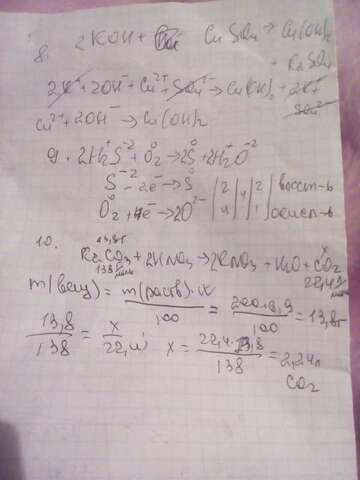 8. 2KOH + CuSO4 → Cu(OH)2 + K2SO4
2K⁺ + 2OH⁻ + Cu²⁺ + SO4²⁻ → Cu(OH)2 + 2K⁺ + SO4²⁻
Cu²⁺ + 2OH⁻ → Cu(OH)2
9. 2H2⁺S⁻² + O2⁰ → 2S⁰ + 2H2⁺O⁻²
S⁻² - 2e⁻ → S⁰ | 2 | 4 | 2 | восст-ь
O2⁰ + 4e⁻ → 2O²⁻ | 4 | 2 | 1 | окисл-ь
10. 13,8г x
K2CO3 + 2HNO3 → 2KNO3 + H2O + CO2
138 г/моль 22,4
m(вещ) = m(раств)·w / 100 = 200·6,9 / 100 = 13,8г
13,8 / 138 = x / 22,4 x = 22,4·13,8 / 138 = 2,24л
CO2